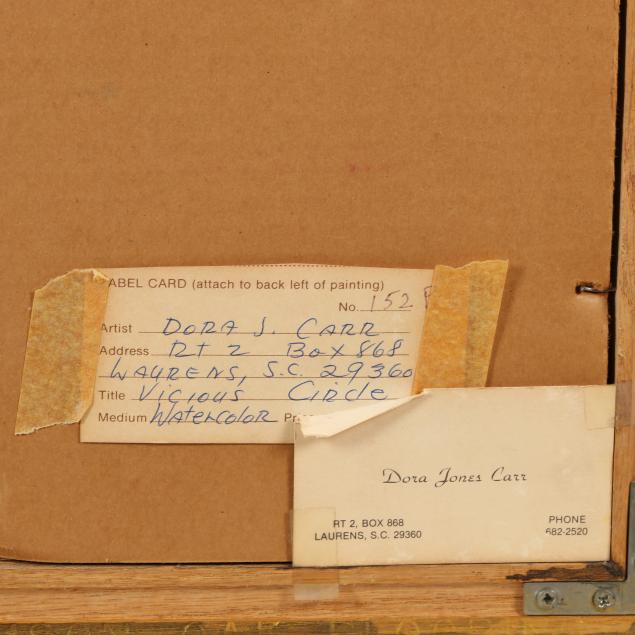 ABEL CARD (attach to back left of painting)
No. 152
Artist DORA J. CARR
Address RT 2 Box 868
LAURENS, S.C. 29360
Title Vicious Circle
Medium Watercolor Pr
Dora Jones Carr
RT 2, BOX 868
LAURENS, S.C. 29360
PHONE
682-2520